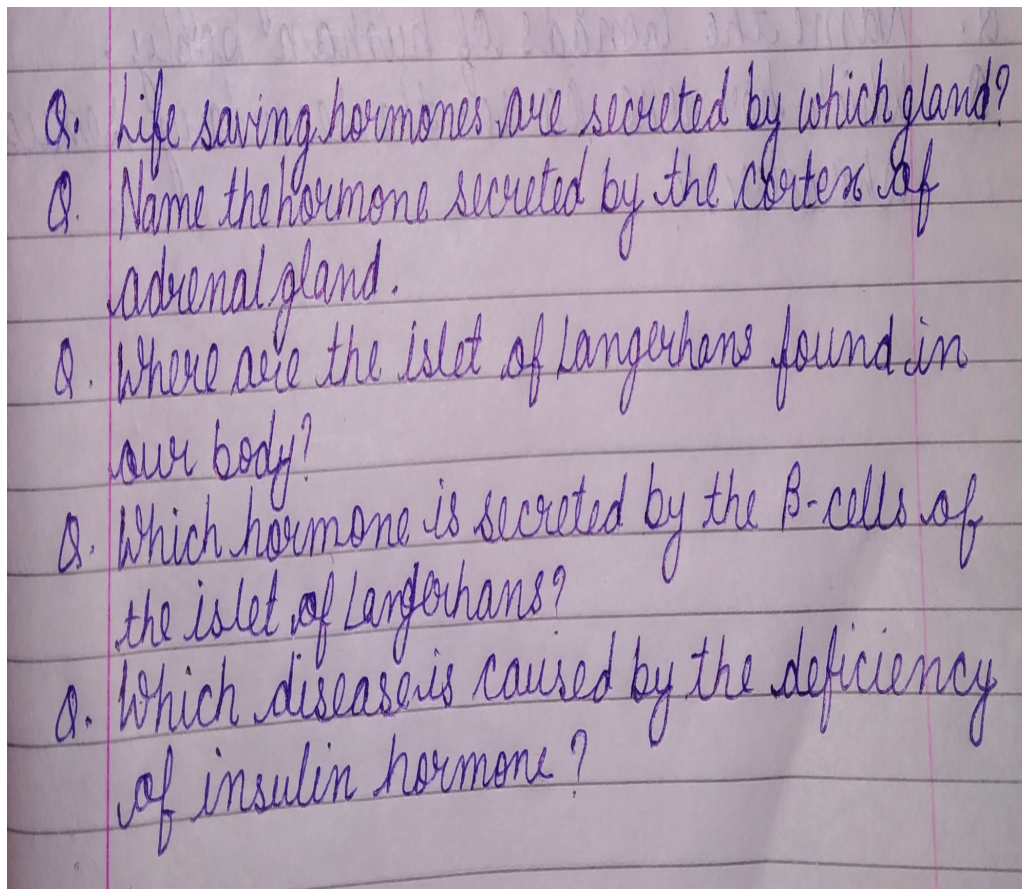 Q. Life saving hormones are secreted by which gland?
Q. Name the hormone secreted by the cortex of
adrenal gland.
Q. Where are the islet of Langerhans found in
our body?
Q. Which hormone is secreted by the B-cells of
the islet of Langerhans?
Q. Which disease is caused by the deficiency
of insulin hormone?